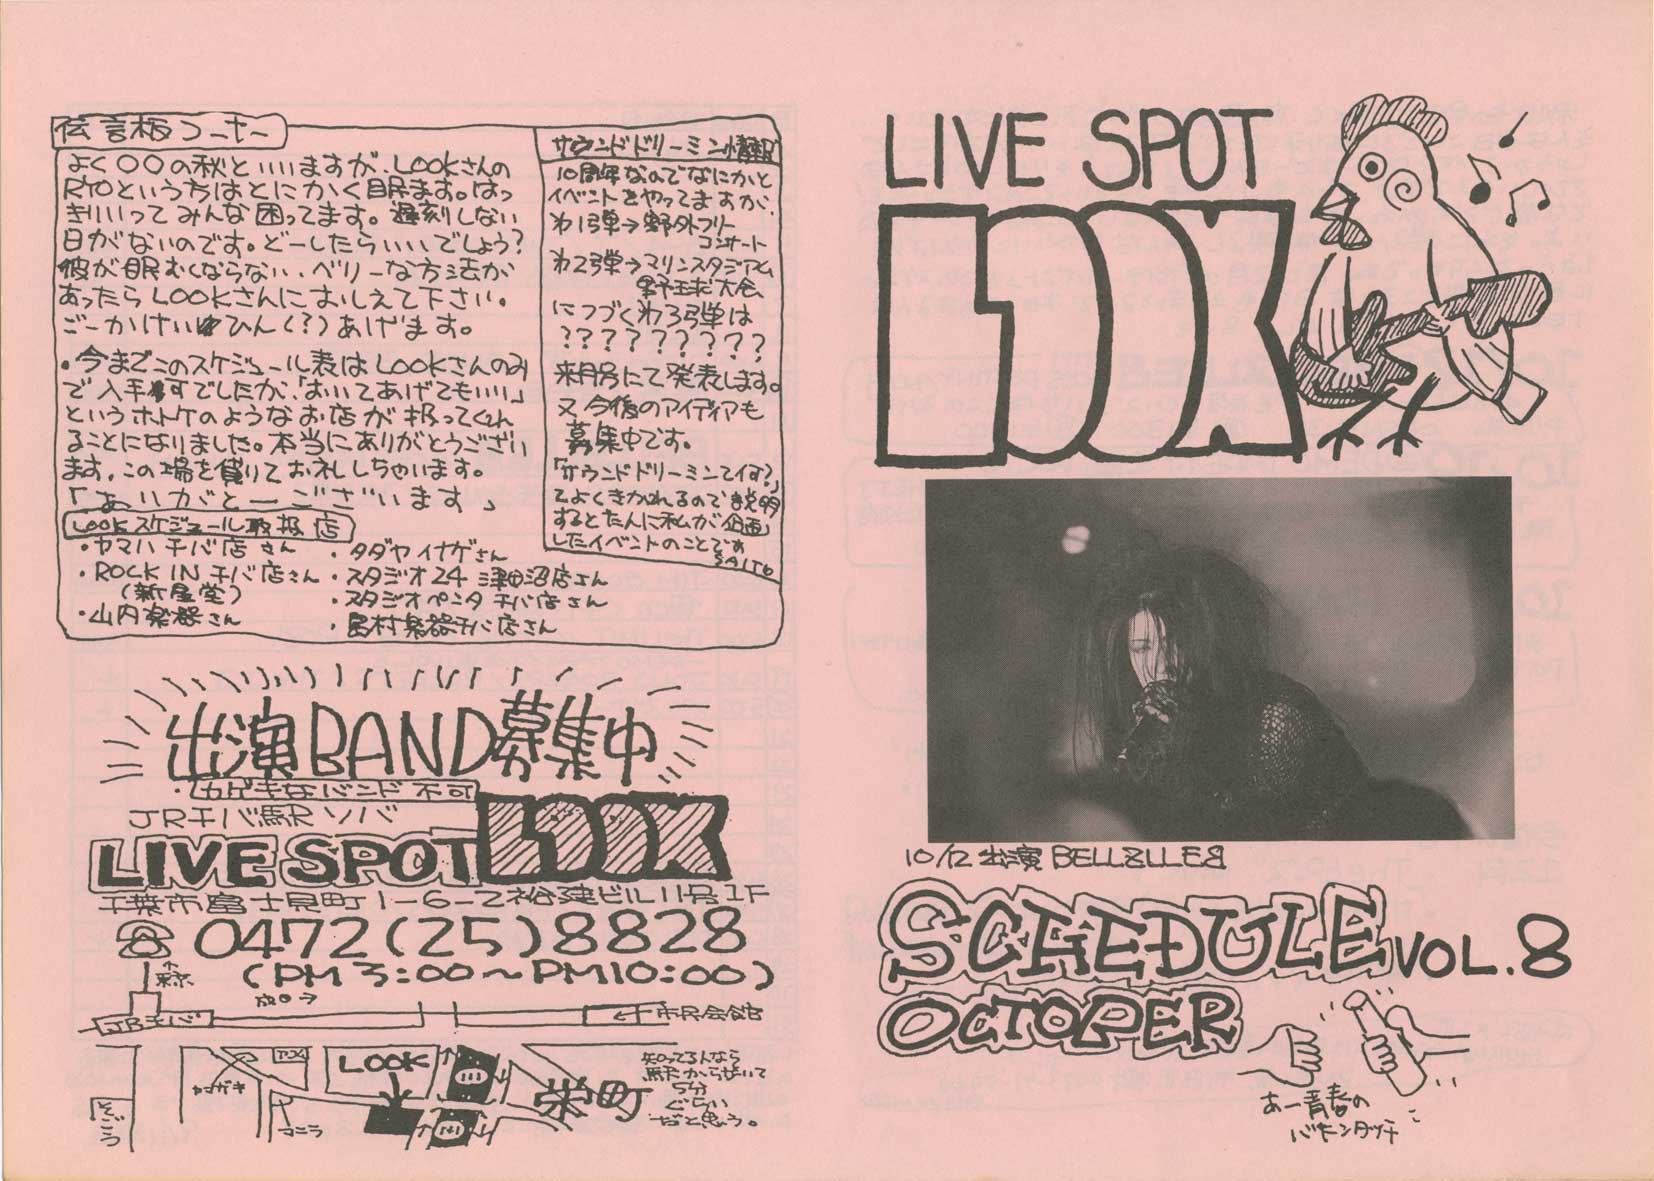 伝言板コーナー
よく〇〇の秋といいますが、LOOKさんの
RYOという方はとにかく眠ます。はっ
きりいってみんな困ってます。遅刻しない
日がないのです。どーしたらいいでしょう?
彼が眠むくならない、ベリーな方法が
あったらLOOKさんにおしえて下さい。
ごーかけいひん(?)あげます。
・今までこのスケジュール表はLOOKさんのみ
で入手でしたが、「おいてあげてもいい」
というホトケのようなお店が扱ってくれ
ることになりました。本当にありがとうござい
ます。この場を借りてお礼しちゃいます。
「ありがとーございます」
LOOKスケジュール取扱店
・ヤマハ千バ店さん
・ROCK IN 千バ店さん
(新星堂)
・山内楽器さん
・タダヤイナゲさん
・スタジオ24 津田沼店さん
・スタジオペンタ 千バ店さん
・島村楽器千バ店さん
サウンドドリーミン情報
10周年なのでなにかと
イベントをやってますが、
わ1弾→野外フリー
コンサート
わ2弾→マリンスタジアム
野球大会
につづくわ3弾は
?????????
来月号にて発表します。
又今後のアイディアも
募集中です。
「サウンドドリーミンてイす?」
てよくきかれるので説明
するとたんに私が企画
したイベントのことです
SAITO
出演BAND募集中
・カゲキなバンド不可
JR千バ駅ソバ
LIVE SPOT LOOK
千葉市富士見町1-6-2裕建ビル11号1F
☎ 0472(25)8828
(PM3:00〜PM10:00)
↑東京
JR千バ
←市民会館
そごう
ヤマザキ
マニラ
LOOK
栄町
知ってる人なら
駅から歩いて
5分
ぐらい
だと思う。
LIVE SPOT
LOOK
10/12 出演 BELL8LLE8
SCHEDULE VOL.8
OCTOBER
あー青春の
バトンタッチ